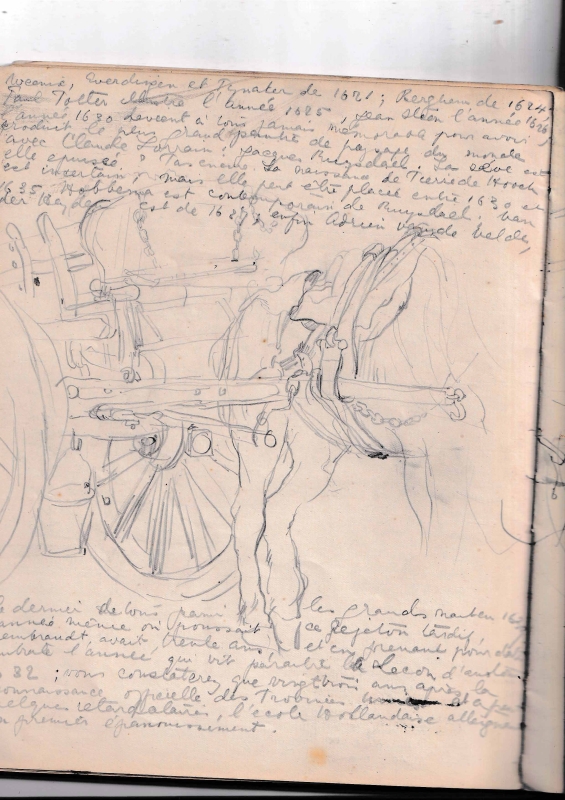 Weenix, Everdingen et Pynaker de 1621 ; Berghem de 1624,
Paul Potter illustre l'année 1625, Jean Steen l'année 1626,
l'année 1630 devient à tous jamais mémorable pour avoir
produit le plus grand peintre de paysage du monde
avec Claude Lorrain : Jacques Ruysdael. La sève est
elle epuisée ? Pas encore. La naissance de Pierre de Hooch
est incertaine, mais elle peut être placée entre 1630 et
1635. Hobbema est contemporain de Ruysdael. Van
der Heyden est de 1637 ; enfin Adrien van de Velde,
le dernier de tous parmi les grands nait en 163
l'année même où poussait ce rejeton tardif,
embrandt avait trente ans et en prenant pour date
entrale l'année qui vit paraître la Leçon d'anatom
32 ; vous constaterez que vingt trois ans après la
connaissance officielle des Provinces
quelques retardataires, l'école Hollandaise atteignait
n premier épanouissement.